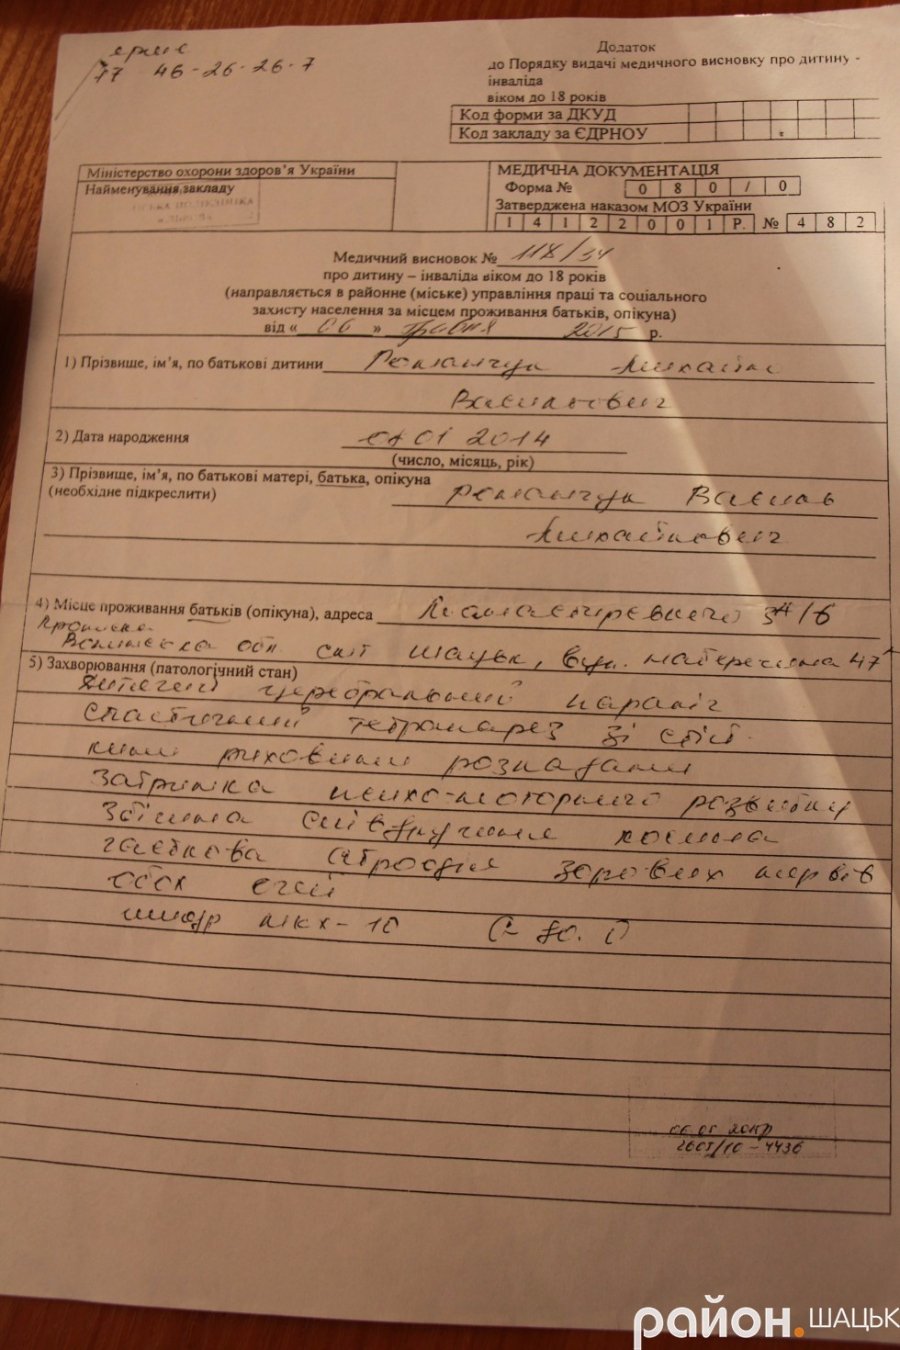 77 46-26-26-7
Додаток
до Порядку видачі медичного висновку про дитину -
інваліда
віком до 18 років
Код форми за ДКУД
Код закладу за ЄДРНОУ
Міністерство охорони здоров'я України
Найменування закладу
МЕДИЧНА ДОКУМЕНТАЦІЯ
Форма № 0 8 0 / 0
Затверджена наказом МОЗ України
1 4 1 2 2 0 0 1 Р. № 4 8 2
Медичний висновок № 118/34
про дитину – інваліда віком до 18 років
(направляється в районне (міське) управління праці та соціального
захисту населення за місцем проживання батьків, опікуна)
від « 06 » травня 2015 р.
1) Прізвище, ім'я, по батькові дитини Романчук Михайло
Васильович
2) Дата народження 01 2014
(число, місяць, рік)
3) Прізвище, ім'я, по батькові матері, батька, опікуна
(необхідне підкреслити) Романчук Василь
Михайлович
4) Місце проживання батьків (опікуна), адреса
Прописка
Волинська обл смт Шацьк, вул. 47
5) Захворювання (патологічний стан)
Дитячий церебральний параліч
спастичний тетрапарез зі стій-
кими руховими розладами
Затримка психо-моторного розвитку
Збіжна співдружня косина
часткова атрофія зорових нервів
обох очей
шифр мкх-10 G 80.0
2605/10-4436
район.ШАЦЬК